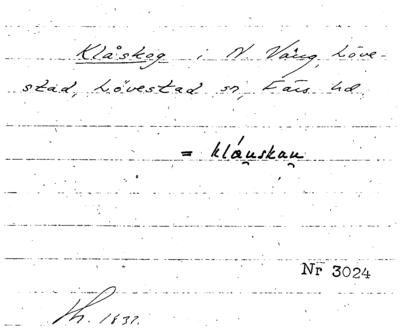 Klåskog i N. Vång, Löve-
stad, Lövestad sn, Färs hd.
= kláu̯skau̯
Nr 3024
Th. 1837.